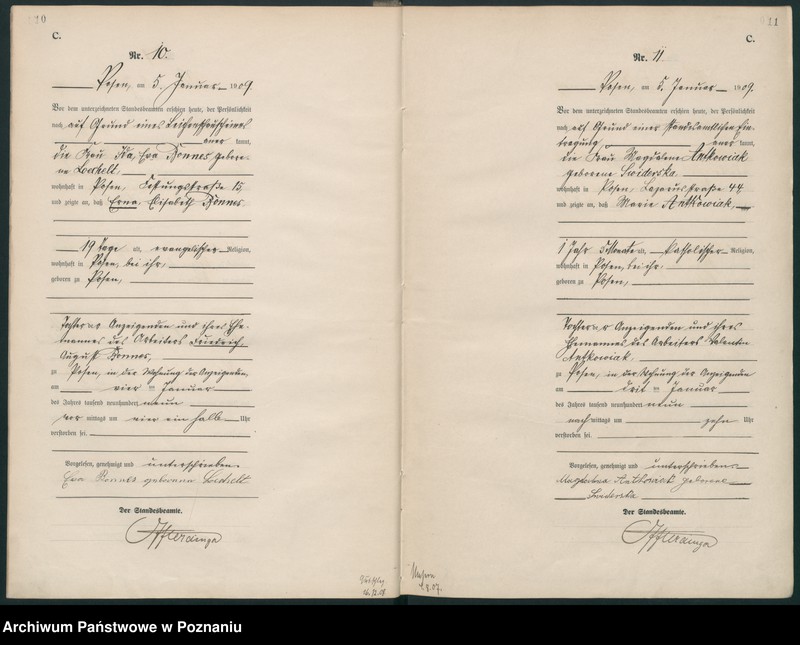 C.
Nr. 10.
Posen, am 5. Januar 1909.
Vor dem unterzeichneten Standesbeamten erschien heute, der Persönlichkeit
nach auf Grund eines Leichenschauscheines
aner kannt,
die Frau Ida, Eva Rönnes gebore-
ne Loechelt,
wohnhaft in Posen, Festungsstraße 15
und zeigte an, daß Erna Elisabeth Rönnes
19 Tage alt, evangelischer Religion,
wohnhaft in Posen, bei ihr,
geboren zu Posen,
Tochter der Anzeigenden und ihres Ehe-
mannes des Arbeiters Friedrich
August Rönnes,
zu Posen, in der Wohnung der Anzeigenden,
am vier ten Januar
des Jahres tausend neunhundert neun
vor mittags um vier ein halb Uhr
verstorben sei.
Vorgelesen, genehmigt und unterschrieben
Eva Rönnes geborene Loechelt
Der Standesbeamte.
11
C.
Nr. 11.
Posen, am 5. Januar 1909.
Vor dem unterzeichneten Standesbeamten erschien heute, der Persönlichkeit
nach auf Grund einer standesamtlichen Ein-
tragung aner kannt,
die Frau Magdalena Antkowiak
geborene Swiderska,
wohnhaft in Posen, Lazarusstraße 44
und zeigte an, daß Marie Antkowiak,
1 Jahr alt, katholischer Religion,
wohnhaft in Posen, bei ihr,
geboren zu Posen,
Tochter der Anzeigenden und ihres
Ehemannes des Arbeiters Valentin
Antkowiak,
zu Posen, in der Wohnung der Anzeigenden
am drit ten Januar
des Jahres tausend neunhundert neun
nach mittags um zehn Uhr
verstorben sei.
Vorgelesen, genehmigt und unterschrieben
Magdalena Antkowiak geborene
Swiderska
Der Standesbeamte.
Archiwum Państwowe w Poznaniu